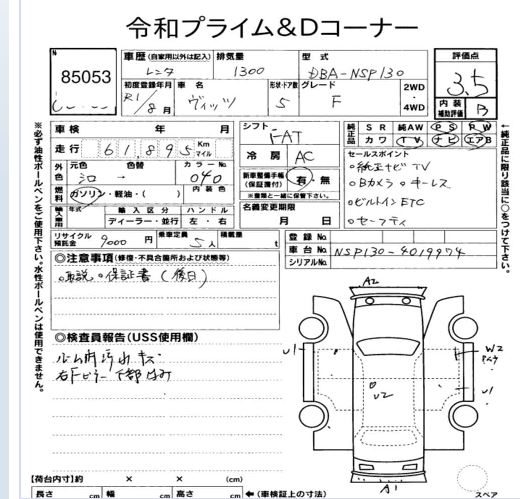 令和プライム&Dコーナー
N
85053
車歴(自家用以外は記入) 排気量 型式
レンタ 1300 DBA-NSP130
初度登録年月 車名 形状・ドア数 グレード
R1/8月 ヴィッツ 5 F
2WD
4WD
評価点
3.5
内装
補助評価 B
車検 年 月
走行 61,895 Km
マイル
外色 元色 色替 カラーNo.
シロ → 040
燃料 ガソリン・軽油・( ) 内装色
輸入車用 年式 輸入区分 ハンドル
ディーラー・並行 左・右
リサイクル預託金 9000 円 乗車定員 5人 積載量 t
シフト FAT
冷房 AC
新車整備手帳(保証書付) 有・無
※書類と一緒に保管下さい。
名義変更期限
月 日
純正品 SR 純AW PS PW
カワ TV ナビ エアB
セールスポイント
○純正ナビTV
○Bカメラ ○キーレス
○ビルトインETC
○セーフティ
登録No.
車台No. NSP130-4019974
シリアルNo.
※必ず油性ボールペンをご使用下さい。水性ボールペンは使用できません。
※純正品に限り該当に○をつけて下さい。
◎注意事項(修復・不具合箇所および状態等)
○取説 ○保証書(後日)
◎検査員報告(USS使用欄)
ルーム内汚れキズ
右Fピラー下部凹
A2
U1
W2
U1
U2
A1
【荷台内寸】約 × × (cm)
長さ cm 幅 cm 高さ cm ←(車検証上の寸法)
スペア